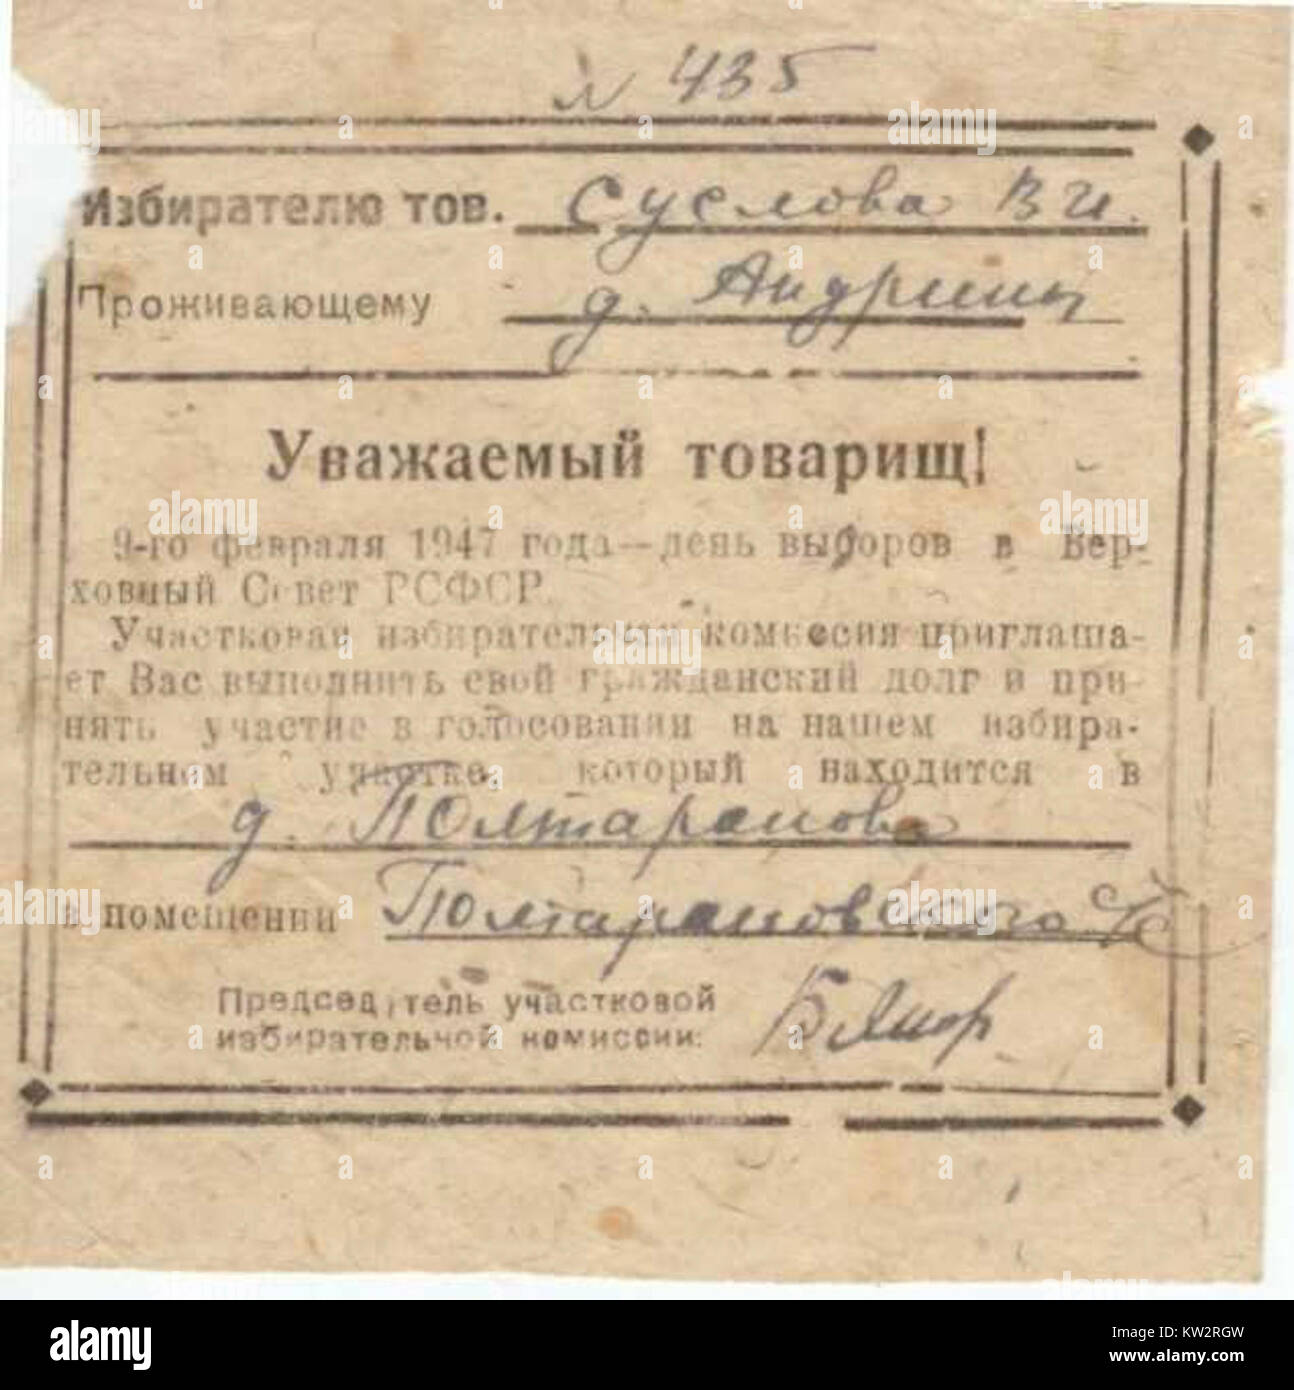 № 435
Избирателю тов. Суслова В И.
Проживающему д. Андрюшы
Уважаемый товарищ!
9-го февраля 1947 года—день выборов в Вер-
ховный Совет РСФСР.
Участковая избирательная комиссия приглаша-
ет Вас выполнить свой гражданский долг и при-
нять участие в голосовании на нашем избира-
тельном участке, который находится в
д. Полтаранова
в помещении Полтарановского с/с
Председатель участковой
избирательной комиссии:
alamy
Image ID: KW2RGW
www.alamy.com